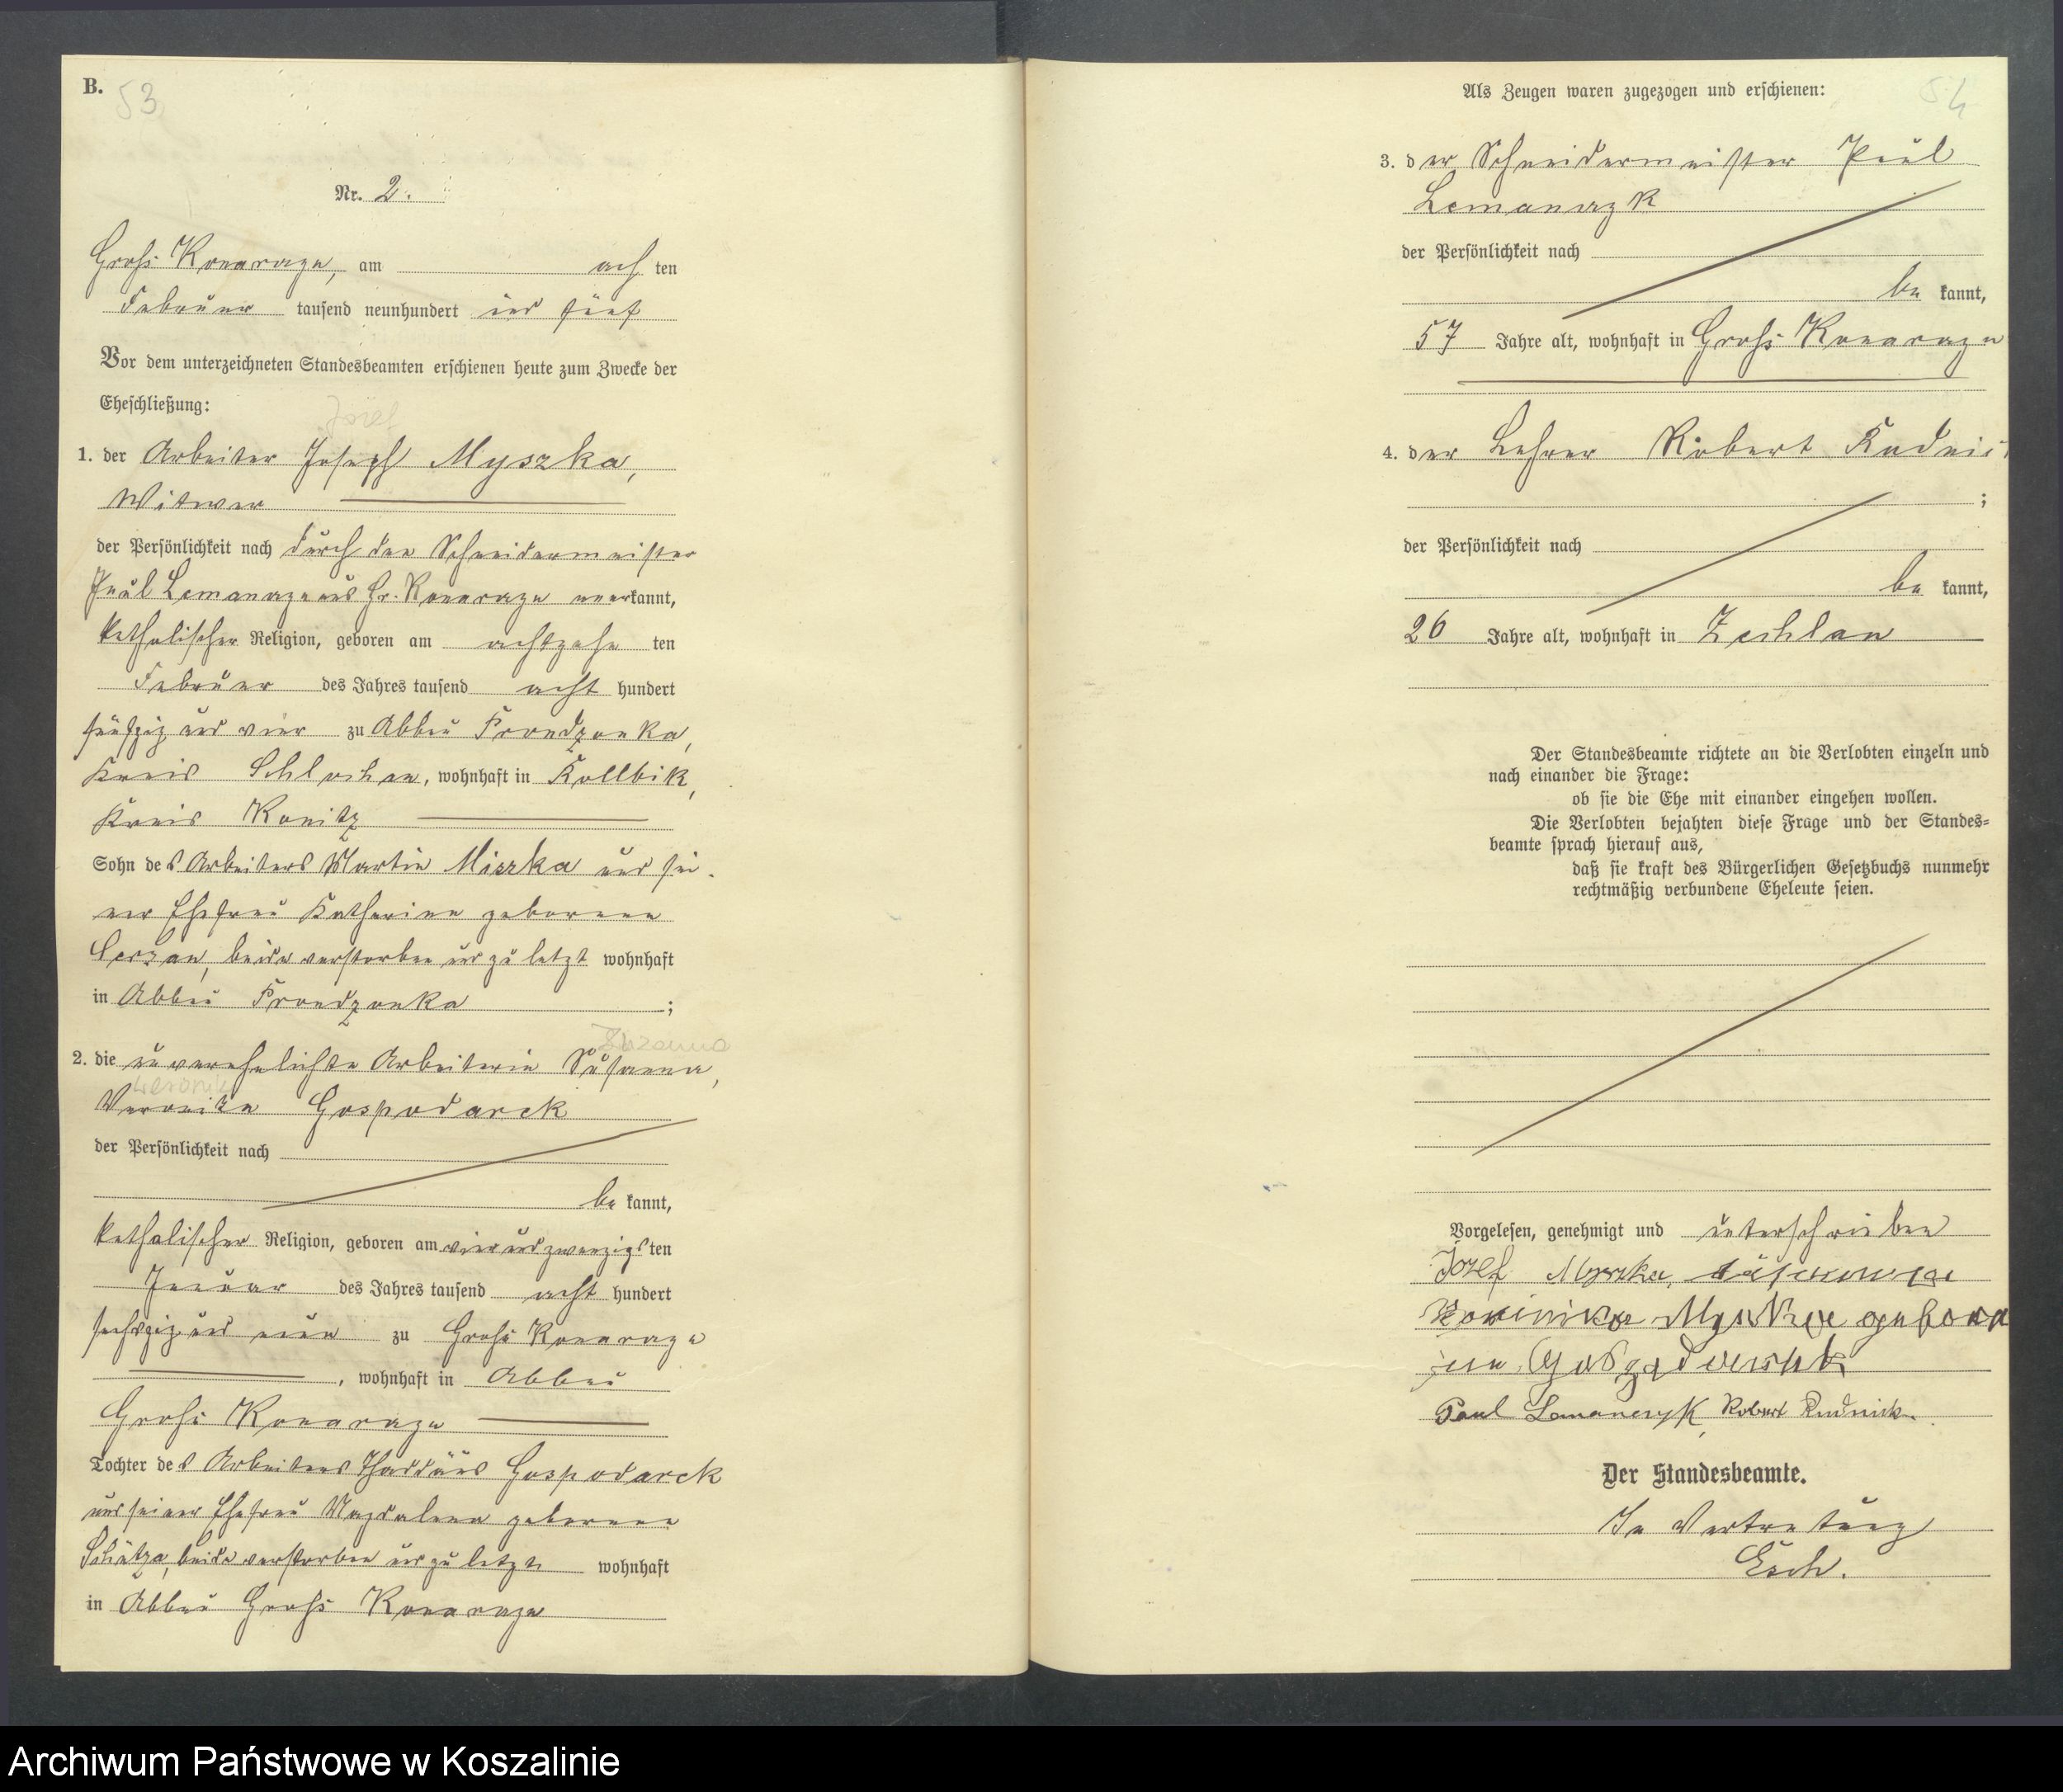 B.
53
Nr. 2.
Groß Konarczyn, am acht ten
Februar tausend neunhundert und fünf
Vor dem unterzeichneten Standesbeamten erschienen heute zum Zwecke der
Eheschließung:
Józef
1. der Arbeiter Joseph Myszka,
Witwer
der Persönlichkeit nach durch den Schneidermeister
Paul Lemanczyk aus Gr. Konarczyn anerkannt,
katholischer Religion, geboren am achtzehn ten
Februar des Jahres tausend acht hundert
fünfzig und vier zu Abbau Prondzonka,
Kreis Schlochau, wohnhaft in Kollbik,
Kreis Konitz
Sohn des Arbeiters Martin Miszka und sei-
ner Ehefrau Katharine geborenen
beide verstorben und zuletzt wohnhaft
in Abbau Prondzonka ;
Zuzanna
2. die unverehelichte Arbeiterin Susanna,
Weronika
Veronika Gospodarek
der Persönlichkeit nach
be kannt,
katholischer Religion, geboren am vierundzwanzigsten
Januar des Jahres tausend acht hundert
sechszig und neun zu Groß Konarczyn
, wohnhaft in Abbau
Groß Konarczyn
Tochter des Arbeiters Thaddäus Gospodarek
und seiner Ehefrau Magdalena geborenen
beide verstorben und zuletzt wohnhaft
in Abbau Groß Konarczyn
54
Als Zeugen waren zugezogen und erschienen:
3. der Schneidermeister Paul
Lemanczyk
der Persönlichkeit nach
be kannt,
57 Jahre alt, wohnhaft in Groß Konarczyn
4. der Lehrer Robert Rudnick
;
der Persönlichkeit nach
be kannt,
26 Jahre alt, wohnhaft in Zechlau
Der Standesbeamte richtete an die Verlobten einzeln und
nach einander die Frage:
ob sie die Ehe mit einander eingehen wollen.
Die Verlobten bejahten diese Frage und der Standes=
beamte sprach hierauf aus,
daß sie kraft des Bürgerlichen Gesetzbuchs nunmehr
rechtmäßig verbundene Eheleute seien.
Vorgelesen, genehmigt und unterschrieben
Józef Myszka,
Myszka gebore
Paul Lemanczyk, Robert Rudnick.
Der Standesbeamte.
In Vertretung
Esch.
Archiwum Państwowe w Koszalinie